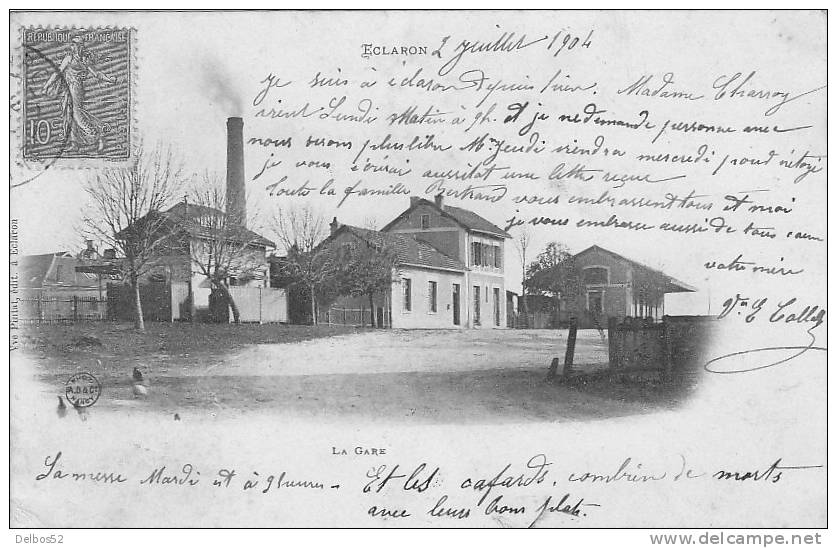 REPUBLIQUE FRANÇAISE
10
ECLARON 2 juillet 1904
je suis à éclaron depuis hier. Madame Charroy
vient Lundi Matin à 9h. et je ne demande personne avec
nous serons plus libre Mr Jeudi viendra mercredi pour
je vous aussitot une lettre reçue
toute la famille Bertrand vous embrassent tous et moi
je vous embrasse aussi de tous cœur
votre mère
Vve E Collot
Vve Pinot, édit. à Eclaron
A.B & Cie
NANCY
LA GARE
La messe Mardi est à 9 heures - Et les cafards, combien de morts
avec leurs bons plats.
Delbos52
www.delcampe.net